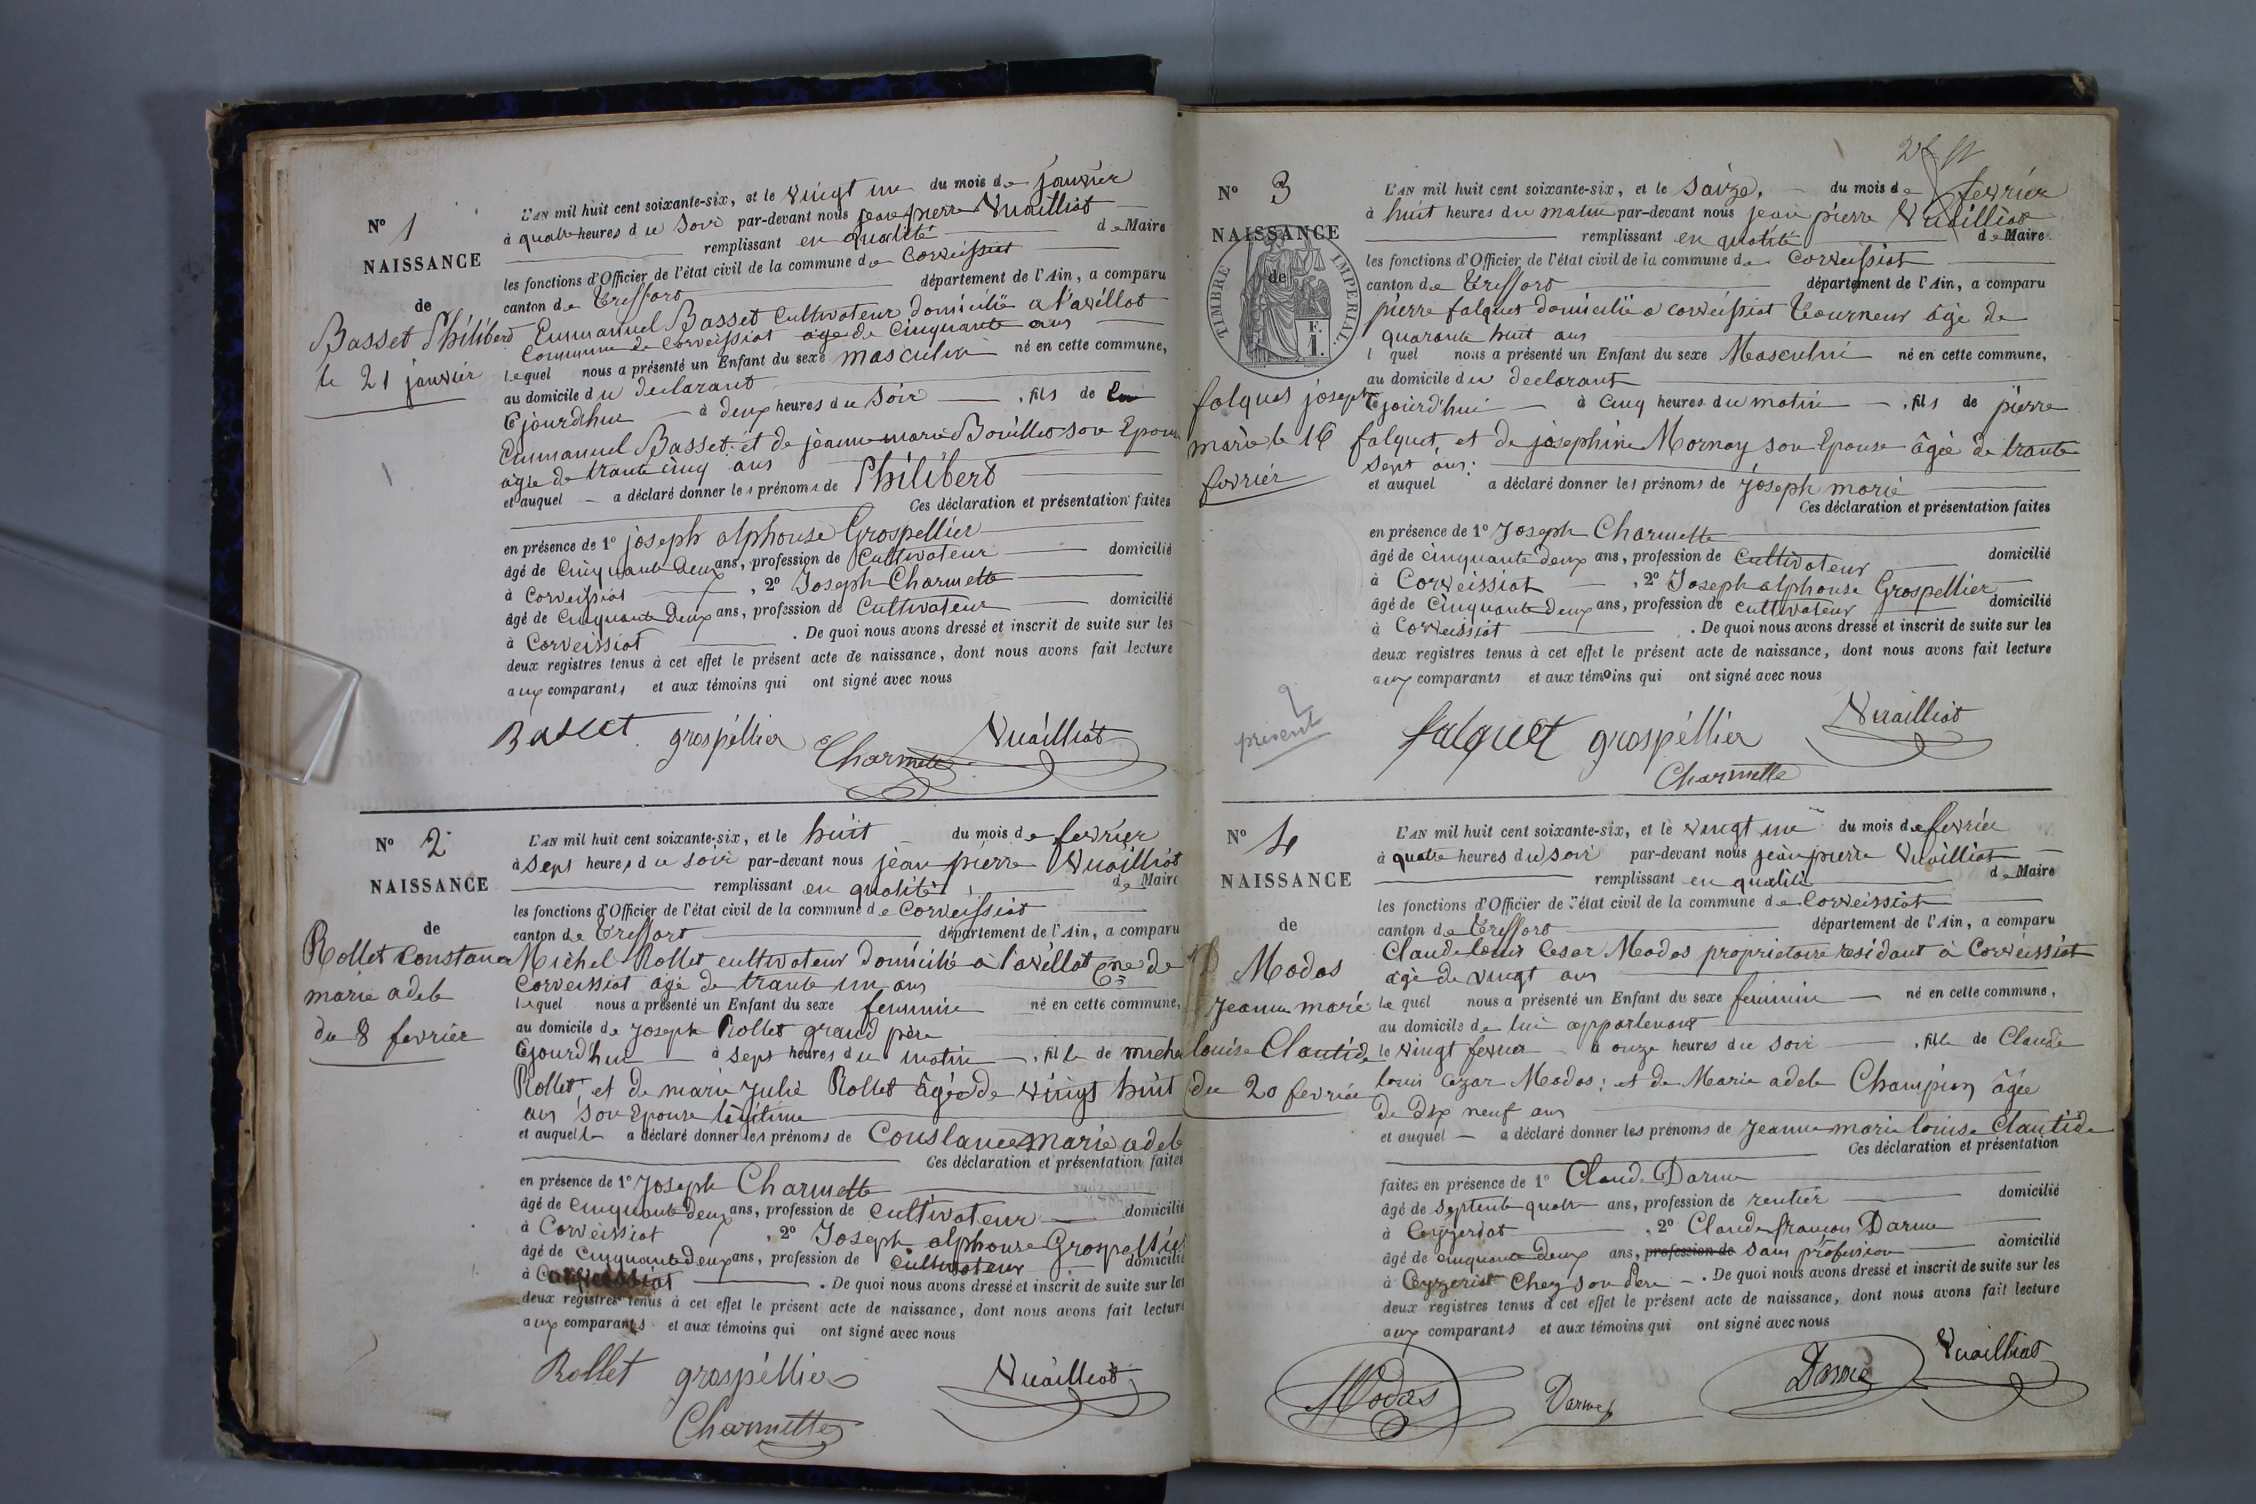 N° 1
NAISSANCE
de
Basset Philibert
le 21 janvier
L'AN mil huit cent soixante-six, et le vingt un du mois de janvier
à quatre heures du soir par-devant nous jean pierre Vuailliat
remplissant en qualité de Maire
les fonctions d'Officier de l'état civil de la commune de Corveissiat
canton de Treffort département de l'Ain, a comparu
Emmanuel Basset Cultivateur domicilié a l'avillat
Commune de Corveissiat agé de Cinquante ans
lequel nous a présenté un Enfant du sexe masculin né en cette commune,
au domicile du declarant
Ejourdhui à deux heures du soir, fils de
Emmanuel Basset et de jeanne marie Bouillet son Epouse
agée de trante cinq ans
et auquel a déclaré donner les prénoms de Philibert
Ces déclaration et présentation faites
en présence de 1° joseph alphonse Grospellier
âgé de Cinquante deux ans, profession de Cultivateur domicilié
à Corveissiat, 2° Joseph Charmette
âgé de Cinquante Deux ans, profession de Cultivateur domicilié
à Corveissiat. De quoi nous avons dressé et inscrit de suite sur les
deux registres tenus à cet effet le présent acte de naissance, dont nous avons fait lecture
aux comparants et aux témoins qui ont signé avec nous
Basset grospéllier Charmette Vuailliat
N° 2
NAISSANCE
de
Rollet Constance
marie adele
du 8 fevrier
L'AN mil huit cent soixante-six, et le huit du mois de fevrier
à sept heures du soir par-devant nous jean pierre Vuailliat
remplissant en qualité de Maire
les fonctions d'Officier de l'état civil de la commune de Corveissiat
canton de Treffort département de l'Ain, a comparu
Michel Rollet cultivateur domicilié a l'avillat Cne de
Corveissiat agé de trante un ans
lequel nous a présenté un Enfant du sexe feminin né en cette commune,
au domicile de Joseph Rollet grand père
Ejourd'hui à sept heures du matin, fille de michel
Rollet et de marie Julie Rollet âgée de vingt huit
ans son Epouse légitime
et auquel a déclaré donner les prénoms de Constance marie adele
Ces déclaration et présentation faites
en présence de 1° Joseph Charmette
âgé de Cinquante deux ans, profession de cultivateur domicilié
à Corveissiat, 2° Joseph alphonse Grospellier
âgé de Cinquante deux ans, profession de cultivateur domicilié
à Corveissiat. De quoi nous avons dressé et inscrit de suite sur les
deux registres tenus à cet effet le présent acte de naissance, dont nous avons fait lecture
aux comparants et aux témoins qui ont signé avec nous
Rollet grospéllier Vuailliat
Charmette
N° 3
NAISSANCE
de
TIMBRE IMPERIAL
F.
1.
falquet joseph
marie le 16
fevrier
L'AN mil huit cent soixante-six, et le saize, du mois de fevrier
à huit heures du matin par-devant nous jean pierre Vuailliat
remplissant en qualité de Maire
les fonctions d'Officier de l'état civil de la commune de Corveissiat
canton de Treffort département de l'Ain, a comparu
pierre falquet domicilié a corveissiat Tourneur âgé de
quarante huit ans
l quel nous a présenté un Enfant du sexe Masculin né en cette commune,
au domicile du declarant
Ejourd'hui à cinq heures du matin, fils de pierre
falquet, et de josephine Mornay son Epouse âgée de trante
sept ans;
et auquel a déclaré donner les prénoms de joseph marie
Ces déclaration et présentation faites
en présence de 1° Joseph Charmette
âgé de cinquante deux ans, profession de cultivateur domicilié
à Corveissiat, 2° Joseph alphonse Grospellier
âgé de Cinquante Deux ans, profession de cultivateur domicilié
à Corveissiat. De quoi nous avons dressé et inscrit de suite sur les
deux registres tenus à cet effet le présent acte de naissance, dont nous avons fait lecture
aux comparants et aux témoins qui ont signé avec nous
présent
falquet grospéllier Vuailliat
Charmette
N° 4
NAISSANCE
de
Modas
Jeanne marie
louise Clautide
du 20 fevrier
L'AN mil huit cent soixante-six, et le vingt un du mois de fevrier
à quatre heures du soir par-devant nous jean pierre Vuailliat
remplissant en qualité de Maire
les fonctions d'Officier de l'état civil de la commune de Corveissiat
canton de Treffort département de l'Ain, a comparu
Claude louis Cesar Modas proprietaire residant à Corveissiat
agé de vingt ans
le quel nous a présenté un Enfant du sexe feminin né en cette commune,
au domicile de lui appartenant
le vingt fevrier à onze heures du soir, fille de Claude
louis Cezar Modas; et de Marie adele Champion âgée
de Dix neuf ans
et auquel a déclaré donner les prénoms de jeanne marie louise Clautide
Ces déclaration et présentation
faites en présence de 1° Claude Darme
âgé de septente quatre ans, profession de rentier domicilié
à Ceyzeriat, 2° Claude françois Darme
âgé de cinquante deux ans, profession de sans profession domicilié
à Ceyzeriat chez son Père. De quoi nous avons dressé et inscrit de suite sur les
deux registres tenus à cet effet le présent acte de naissance, dont nous avons fait lecture
aux comparants et aux témoins qui ont signé avec nous
Modas Darme Darme Vuailliat